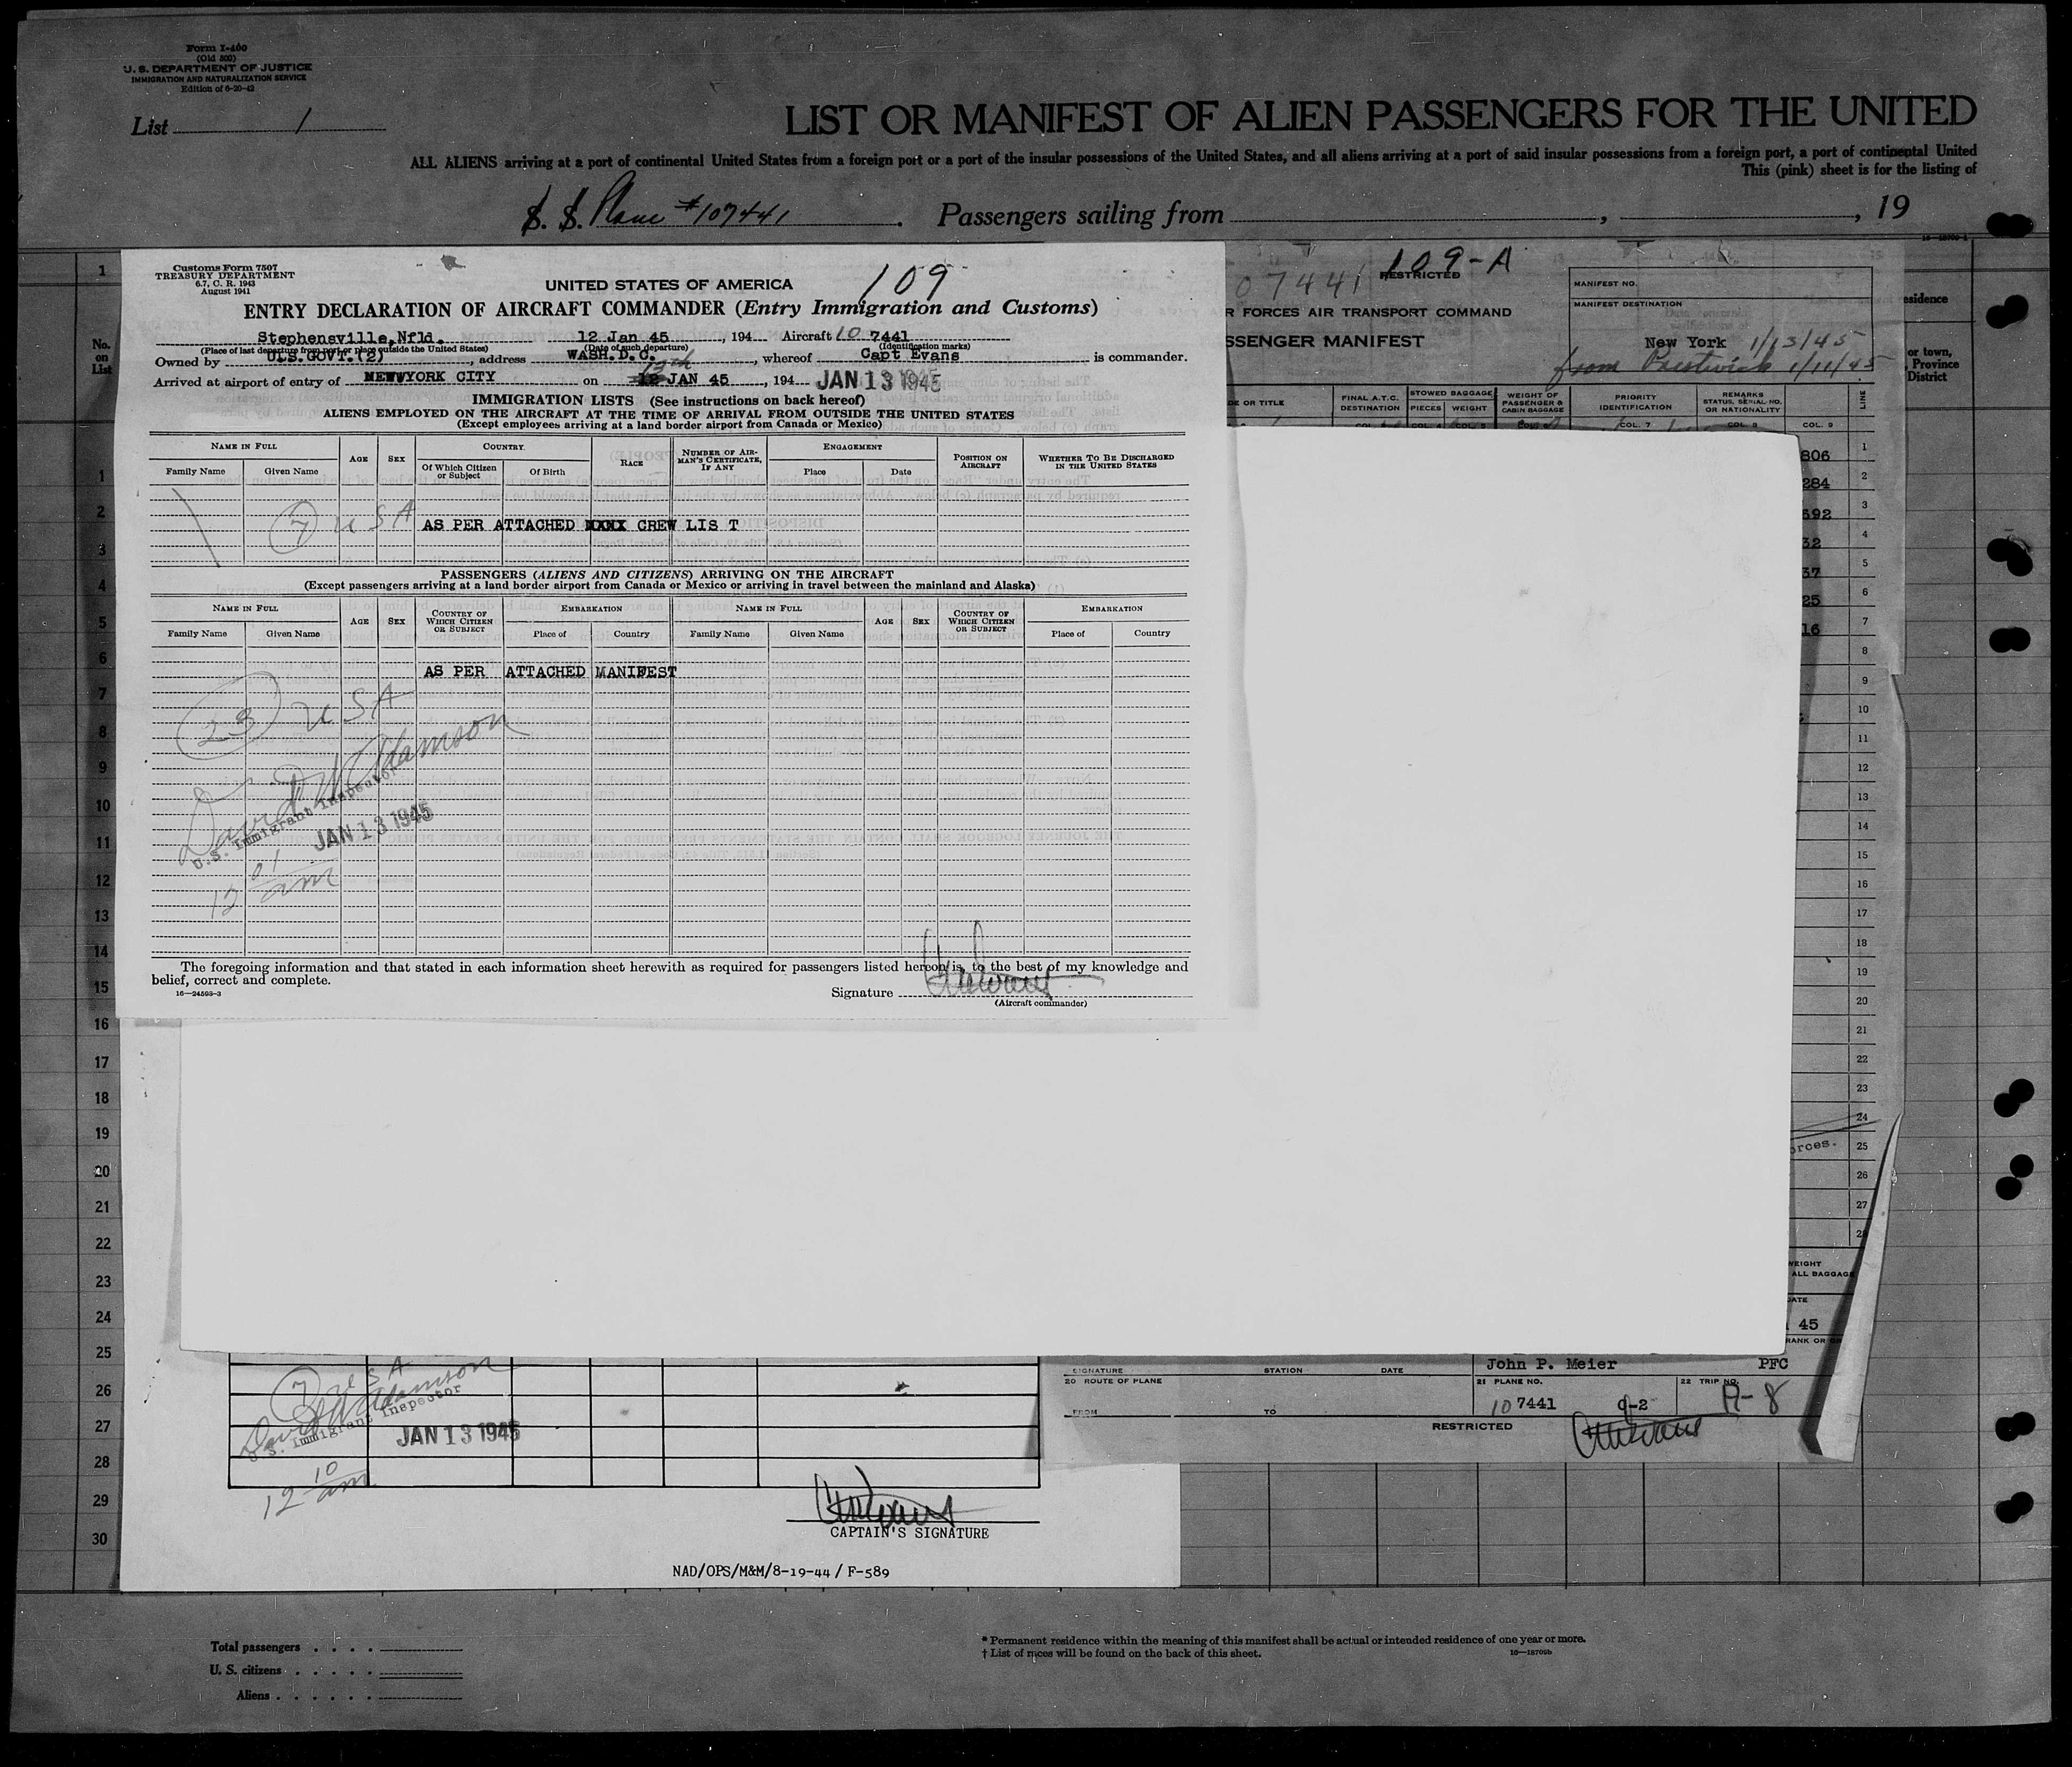 Form I-400
(Old 500)
U. S. DEPARTMENT OF JUSTICE
IMMIGRATION AND NATURALIZATION SERVICE
Edition of 6-20-42
List 1
LIST OR MANIFEST OF ALIEN PASSENGERS FOR THE UNITED
ALL ALIENS arriving at a port of continental United States from a foreign port or a port of the insular possessions of the United States, and all aliens arriving at a port of said insular possessions from a foreign port, a port of continental United
This (pink) sheet is for the listing of
S. S. Plane #107441 . Passengers sailing from , , 19
Customs Form 7507
TREASURY DEPARTMENT
6.7, C. R. 1943
August 1941
UNITED STATES OF AMERICA
109
ENTRY DECLARATION OF AIRCRAFT COMMANDER (Entry Immigration and Customs)
Stephensville,Nfld. 12 Jan 45 , 194 Aircraft 10 7441
(Place of last departure from port or place outside the United States) (Date of such departure) (Identification marks)
Owned by U.S.GOVT.(2) , address WASH.D.C. , whereof Capt Evans is commander.
13th
Arrived at airport of entry of NEWYORK CITY on 12 JAN 45 , 194 JAN 13 1945
IMMIGRATION LISTS (See instructions on back hereof)
ALIENS EMPLOYED ON THE AIRCRAFT AT THE TIME OF ARRIVAL FROM OUTSIDE THE UNITED STATES
(Except employees arriving at a land border airport from Canada or Mexico)
NAME IN FULL AGE SEX COUNTRY RACE NUMBER OF AIRMAN'S CERTIFICATE, IF ANY ENGAGEMENT POSITION ON AIRCRAFT WHETHER TO BE DISCHARGED IN THE UNITED STATES
Family Name Given Name Of Which Citizen or Subject Of Birth Place Date
7 USA
AS PER ATTACHED XXXX CREW LIS T
PASSENGERS (ALIENS AND CITIZENS) ARRIVING ON THE AIRCRAFT
(Except passengers arriving at a land border airport from Canada or Mexico or arriving in travel between the mainland and Alaska)
NAME IN FULL AGE SEX COUNTRY OF WHICH CITIZEN OR SUBJECT EMBARKATION NAME IN FULL AGE SEX COUNTRY OF WHICH CITIZEN OR SUBJECT EMBARKATION
Family Name Given Name Place of Country Family Name Given Name Place of Country
AS PER ATTACHED MANIFEST
23 USA
David W Adamson
U.S. Immigrant Inspector
JAN 13 1945
12 01 am
The foregoing information and that stated in each information sheet herewith as required for passengers listed hereon is, to the best of my knowledge and
belief, correct and complete.
16—24593-3
Signature
(Aircraft commander)
07441
109-A
RESTRICTED
R FORCES AIR TRANSPORT COMMAND
SSENGER MANIFEST
MANIFEST NO.
MANIFEST DESTINATION
New York 1/13/45
from Prestwick 1/11/45
DE OR TITLE FINAL A.T.C. DESTINATION STOWED BAGGAGE PIECES WEIGHT WEIGHT OF PASSENGER & CABIN BAGGAGE PRIORITY IDENTIFICATION REMARKS STATUS, SERIAL NO. OR NATIONALITY LINE
COL. 7 COL. 8 COL. 9
esidence
or town,
, Province
District
No.
on
List
1
1
2
3
4
5
6
7
8
9
10
11
12
13
14
15
16
17
18
19
20
21
22
23
24
25
26
27
28
29
30
806 1
284 2
592 3
32 4
37 5
25 6
16 7
8
9
10
11
12
13
14
15
16
17
18
19
20
21
22
23
24
orces. 25
26
27
28
WEIGHT
ALL BAGGAGE
DATE
45
RANK OR
John P. Meier PFC
SIGNATURE STATION DATE
20 ROUTE OF PLANE 21 PLANE NO. 22 TRIP NO.
10 7441 R-8
FROM TO
RESTRICTED
7 USA
David W Adamson
U.S. Immigrant Inspector
JAN 13 1945
12 10 am
CAPTAIN'S SIGNATURE
NAD/OPS/M&M/8-19-44 / F-589
Total passengers
U. S. citizens
Aliens
* Permanent residence within the meaning of this manifest shall be actual or intended residence of one year or more.
† List of races will be found on the back of this sheet.
16—18709b